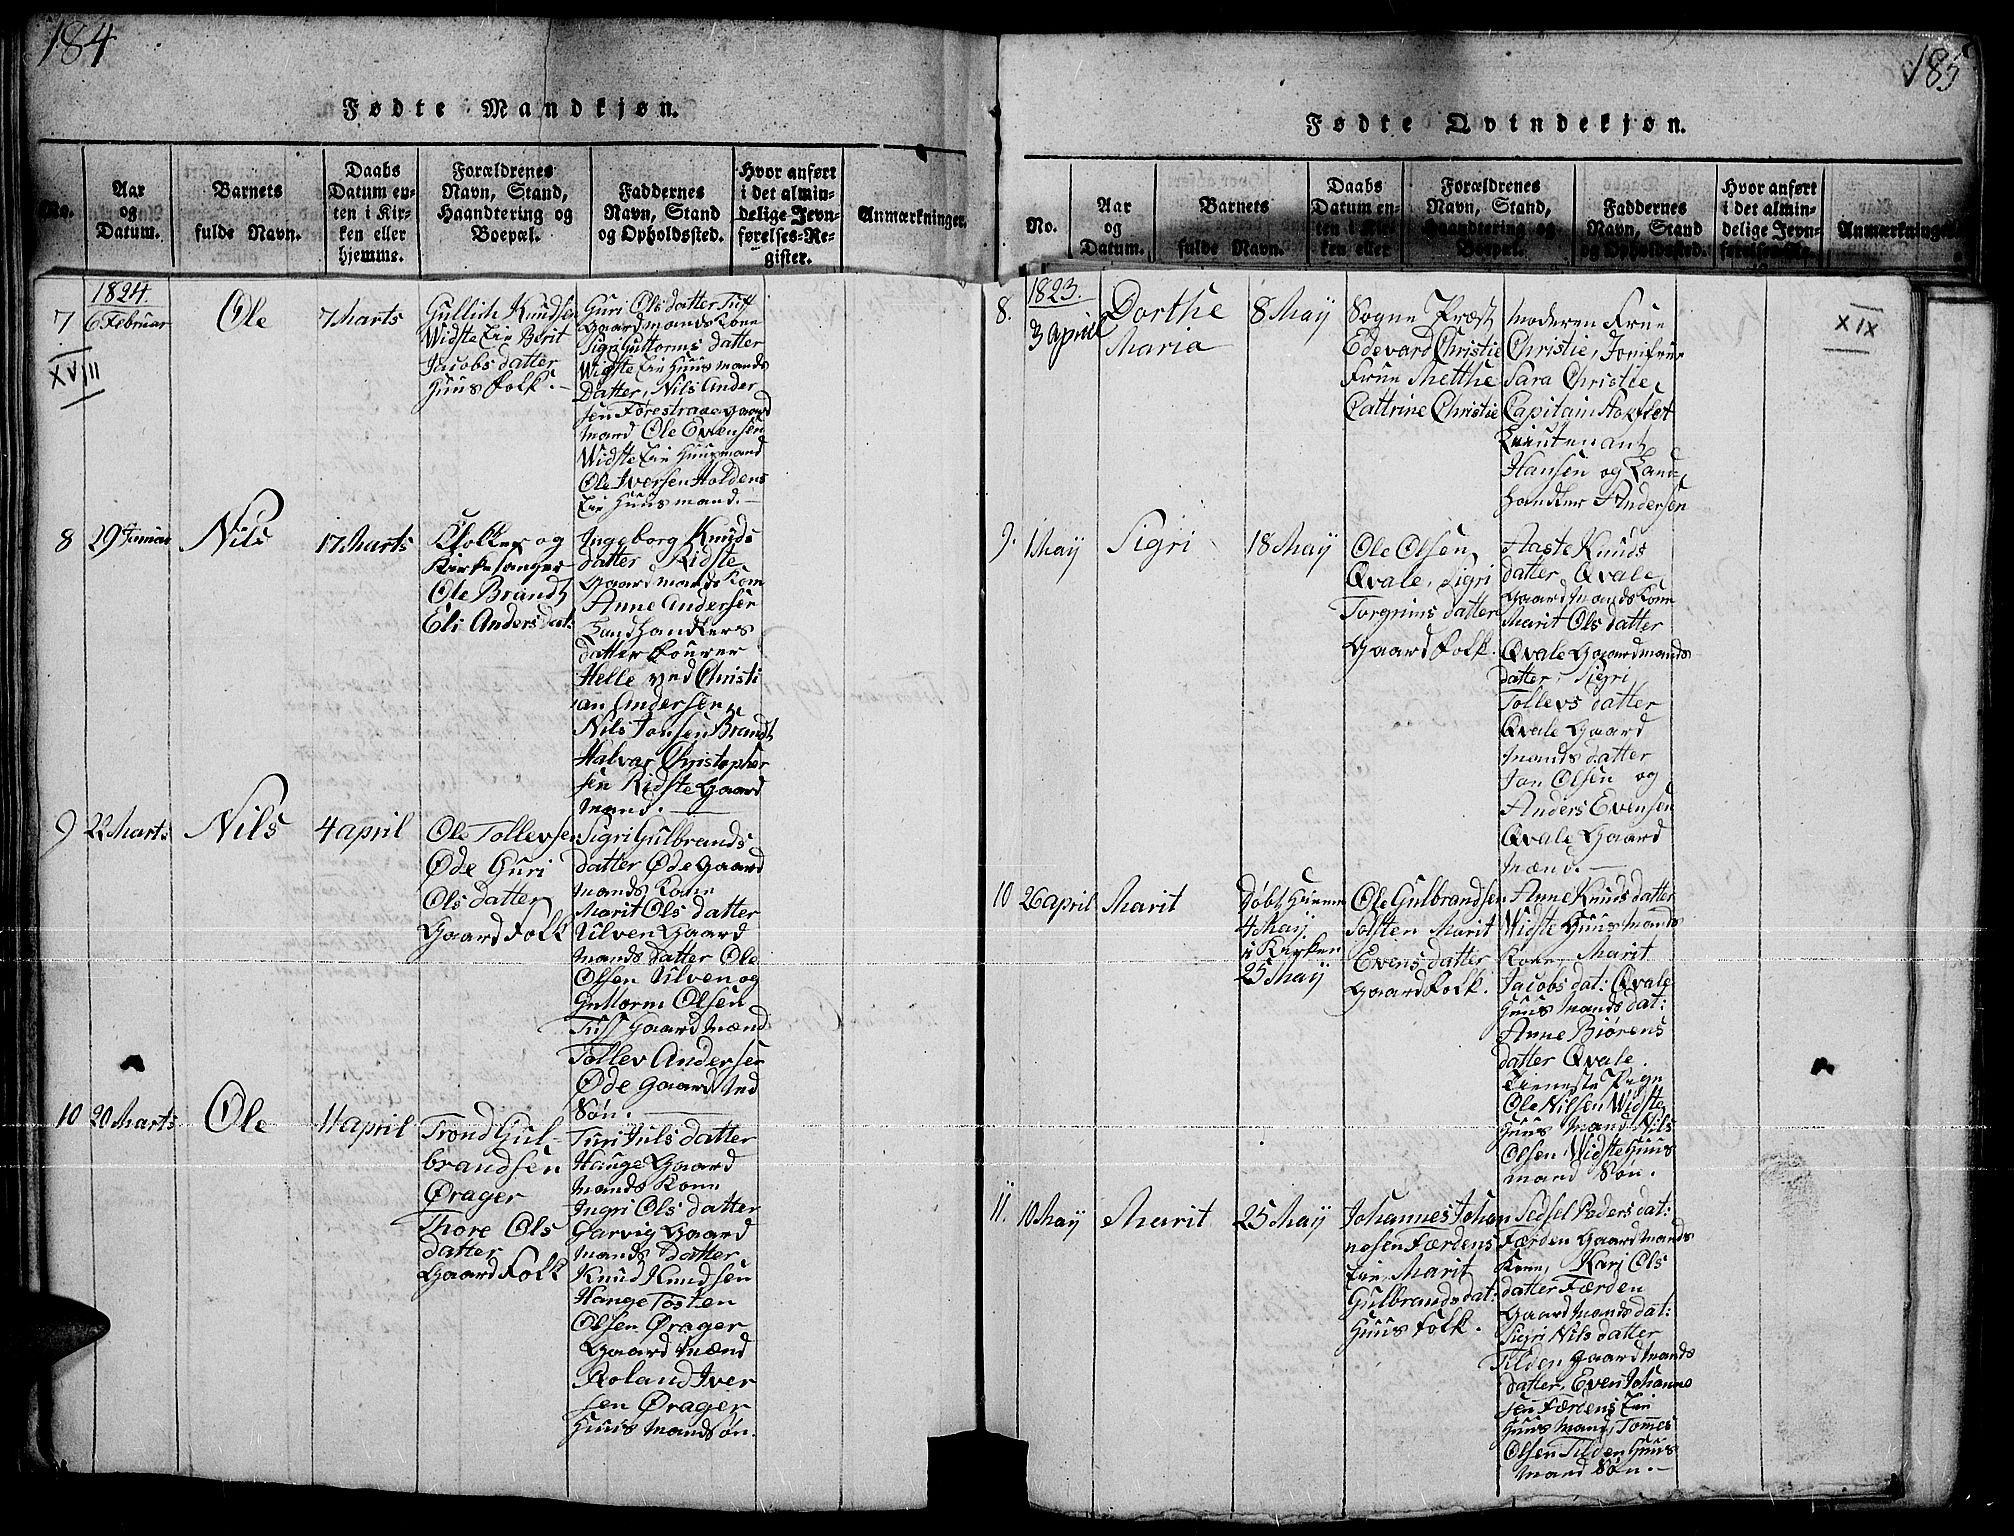 184
Fødte Mandkjøn.
No.
Aar
og
Datum.
Barnets
fulde Navn.
Daabs
Datum en-
ten i Kir-
ken eller
hjemme.
Forældrenes
Navn, Stand,
Haandtering og
Boepæl.
Faddernes
Navn, Stand
og Opholdssted.
Hvor anført
i det almin-
delige Jevn-
førelses-Re-
gister.
Anmærkninger.
1824.
7
6 Februar
XVIII
Ole
7 Marts
Gullich Knudsen
Widste Eie Berit
Jacobs datter
Huus folk.
Guri Ols datter Tuff
Gaardmands Kone
Sigri Guttorms datter
Widste Eie Huusmands
Datter, Nils Ander
sen Førestraae gaard
mand Ole Evensen
Widste Eie Huusmand
Ole Iversen Holdens
Eie Huusmand.
8
29 Januar
Nils
17 Marts
Klokker og
Kirkesanger
Ole Brandt
Eli Anders dat:
Ingeborg Knuds
datter Ridste
Gaardmands Kone
Anne Andersen
Handhandlers
datter Fourer
Helle ved Christi
an Andersen,
Nils Jonsen Brandt
Halvar Christopher
sen Ridste Gaard
mand.
9
22 Marts
Nils
4 april
Ole Tollevsen
Øde Guri
Ols datter
Gaard Folk
Sigri Gulbrands
datter Øde Gaard
mands Kone
Marit Ols datter
Ulven Gaard
mands datter Ole
Olsen Ulven og
Guttorm Olsen
Tuff Gaard Mænd
Tollev Andersen
Øde Gaard Md
Søn.
10
20 Marts
Ole
11 april
Trond Gul-
brandsen
Ørager
Thore Ols
datter
Gaard Folk
Turi Juls datter
Hauge Gaard
mands Kone
Ingri Ols datter
Garvig Gaard
mands datter
Knud Knudsen
Hauge Tosten
Olsen Ørager
Gaard Mænd
Roland Iver
sen Ørager
Huus mands øn.
185
Fødte Qvindekjøn.
No.
Aar
og
Datum.
Barnets
fulde Navn.
Daabs
Datum en-
ten i Kir-
ken eller
Forældrenes
Navn, Stand,
Haandtering og
Boepæl.
Faddernes
Navn, Stand
og Opholdssted.
Hvor anført
i det almin-
delige Jevn-
førelses-Re-
Anmærkninger.
1823.
8.
3 April
Dorthe
Maria
8 May
Sogne Præst
Edevard Christie
Frue Metthe
Cattrine Christie
Moderen Frue
Christie, Jomfrue
Sara Christie,
Capitain Stapflet
Lieutenant
Hansen og Land-
handler Andersen
XIX
9.
1 May
Sigri
18 May
Ole Olsen
Qvale, Sigri
Torgrims datter
Gaard Folk.
Aaste Knuds
datter, Qvale
Gaard Mands Kone
Marit Ols datter
Qvale Gaardmands
datter, Sigri
Tollevs datter
Qvale Gaard
mands datter
Jon Olsen og
Anders Evensen
Qvale Gaard
Mænd.
10
26 april
Marit
Døbt Hiemme
4 May
i Kirken
25 May
Ole Gulbrandsen
Solsten Marit
Evens datter
Gaard Folk.
Anne Knuds datter
Widste Huusmands
Kone, Marit
Jacobs dat: Qvale
Huus Mands dat:
Anne Biørens
datter Qvale
Tieneste Pige
Ole Nilsen Widste
Huus Mand, Nils
Olsen Widste Huus
mand Søn.
11.
10 May
Marit
25 May
Johannes Johan
nesen Færdens
Eie, Marit
Gulbrands dat:
Huus Folk.
Sedsel Peders dat:
Færden Gaard Mands
Kone, Kari Ols
datter Færden
Gaard Mands dat:
Sigri Nils datter
Tilden Gaard Mands
datter, Even Johanne
sen Færdens Eie
Huus Mand, Tomes
Olsen Tilden Huus
mand Søn.